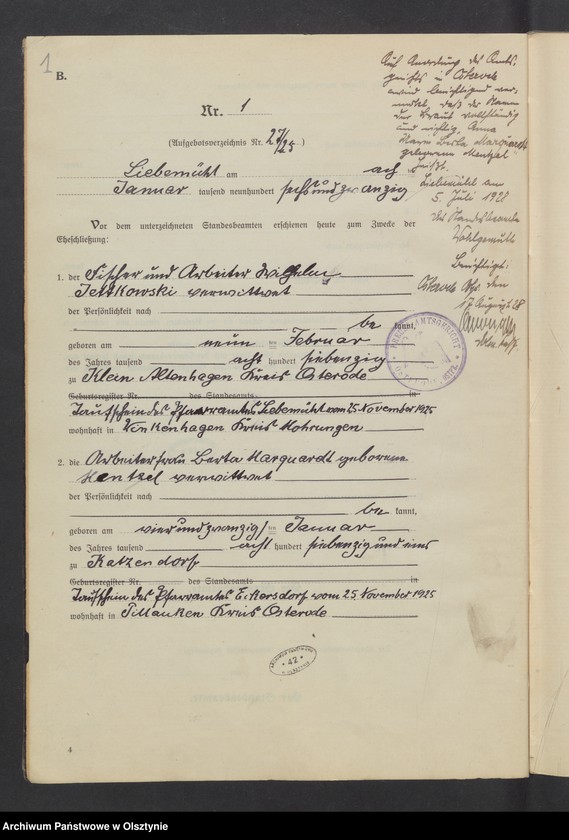 1
B.
Auf Anordnung des Amts-
gerichts in Osterode
wird berichtigend ver-
merkt, daß der Name
der Braut vollständig
und richtig, Anna
Berta Marquardt
geborene Mentzel
heißt.
Liebemühl am
5. Juli 1928
Der Standesbeamte
Wohlgemuth
Berichtigt:
Osterode Opr. den
17 August 28
Nr. 1
(Aufgebotsverzeichnis Nr. 27/25)
Liebemühl am acht
Januar tausend neunhundert sechsundzwanzig
Vor dem unterzeichneten Standesbeamten erschienen heute zum Zwecke der
Eheschließung:
1. der Fischer und Arbeiter Wilhelm
verwittwet
der Persönlichkeit nach
be kannt,
geboren am neun ten Februar
des Jahres tausend acht hundert siebenzig
zu Klein Altenhagen Kreis Osterode
Geburtsregister Nr. des Standesamts in
Taufschein des Pfarramtes Liebemühl vom 25. November 1925
wohnhaft in Kreis Mohrungen
2. die Arbeiterfrau Berta Marquardt geborene
Mentzel verwittwet
der Persönlichkeit nach
be kannt,
geboren am vierundzwanzig ten Januar
des Jahres tausend acht hundert siebenzig und eins
zu Katzendorf
Geburtsregister Nr. des Standesamts in
Taufschein des Pfarramtes Eckersdorf vom 25. November 1925
wohnhaft in Pillauken Kreis Osterode
42
4
Archiwum Państwowe w Olsztynie